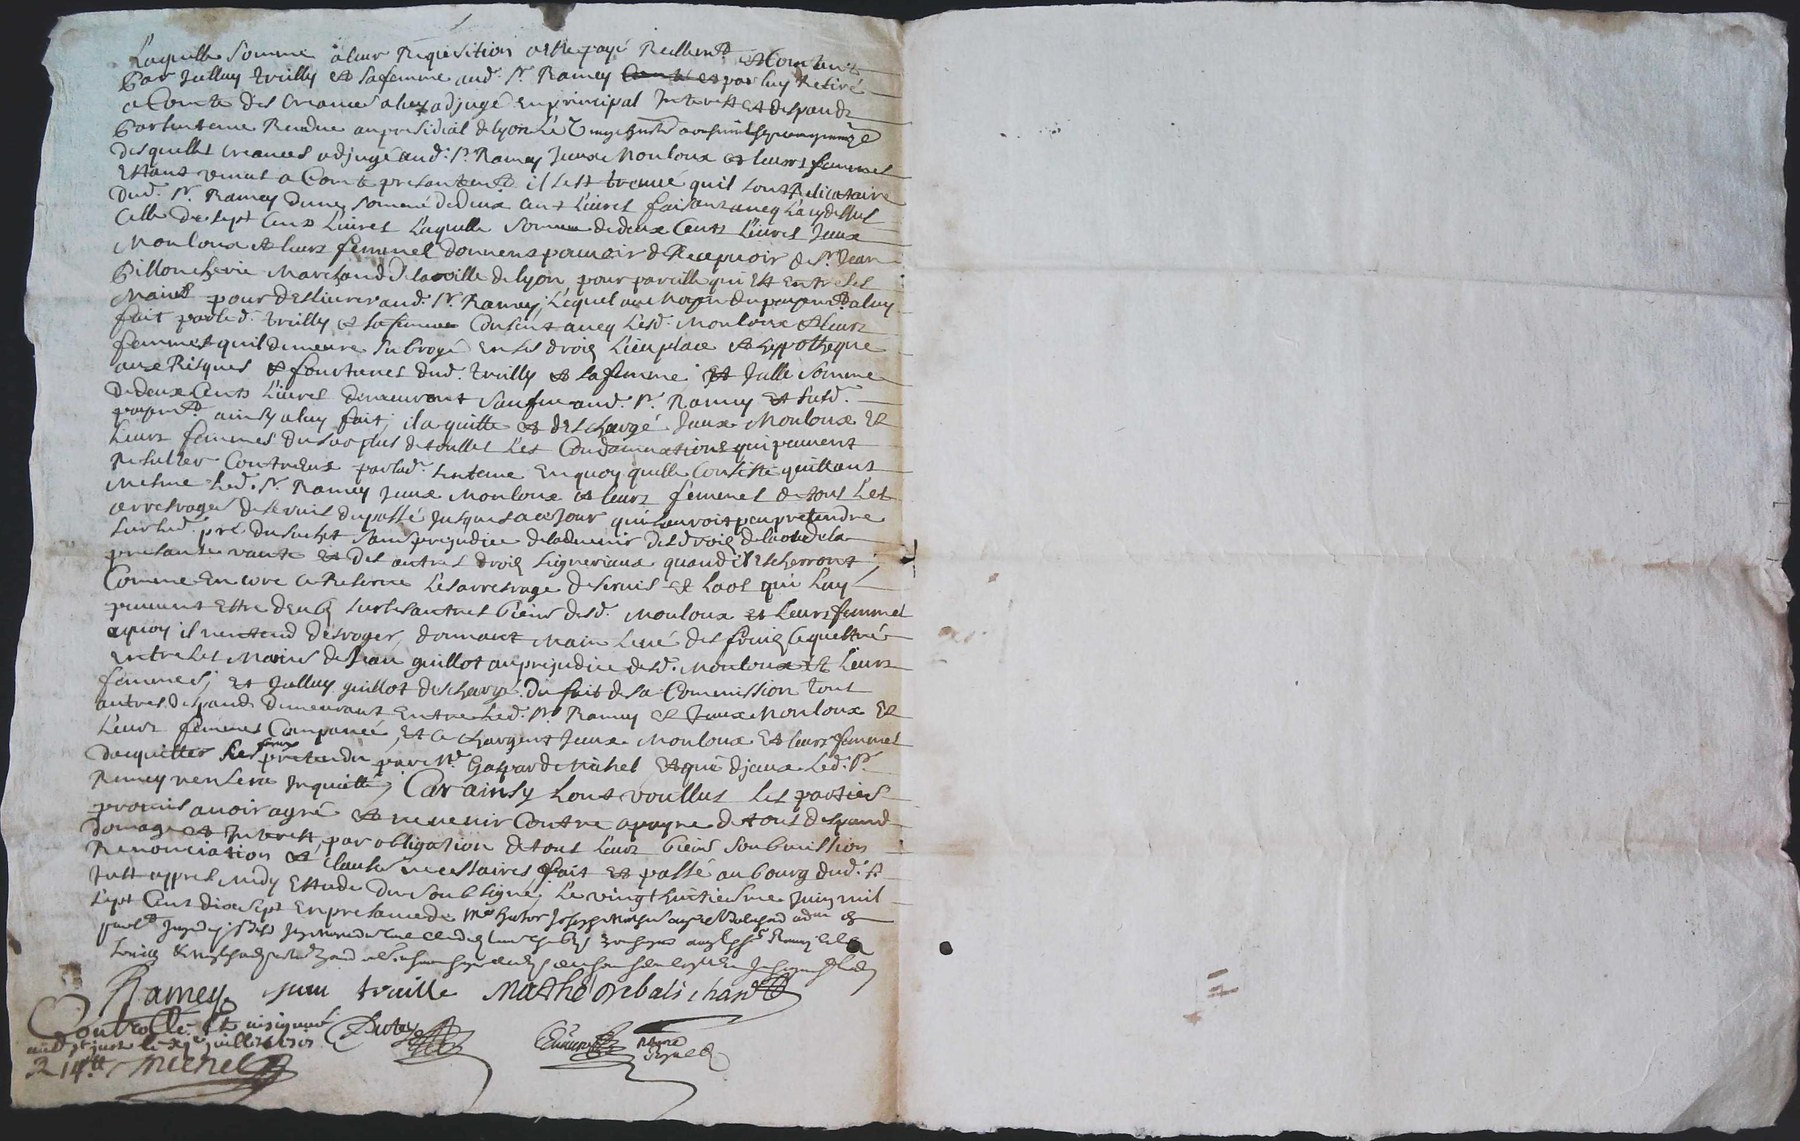 Laquelle somme a leur Requisition a este payé Reellemt. et Contant
Par Jcelluy truilly et sa femme aud. Sr. Ramey et par luy Retiré
a Comte des Creances a luy adjugé en principal Interest et despandz
Par sentence Rendue au presidial de lyon le
desquelles creances adjugé aud. Sr. Ramey Jceux Mouloux et leurs femmes
Estant venus a Comte presantemt. il s'est treuvé quil sont Relicataire
dud. Sr. Ramey d'une somme de deux cent Livres faisant avec La cy dessus
Celle de sept Cens Livres Laquelle somme de deux Cents Livres Jceux
Mouloux et leurs femmes donnent pouvoir de Recepvoir de Sr. Jean
Billoncherie Marchand de la ville de lyon, pour pareille qui est entre ses
Mains pour deslivrer aud. Sr. Ramey, Lequel au Moyen du payemt. a luy
fait par led. truilly et sa femme Consent avec Lesd. Mouloux et leurs
femmes quil demeure subrogé en ses droiz Lieu place et hyppotheque
aux Risques et fourtunes dud. truilly et sa femme et Jcelle somme
de deux Cents Livres demeurant sauf aud. Sr. Ramey et sud.
payemt. ainsy a luy fait, il a quitte et deschargé Jceux Mouloux et
leurs femmes du surplus de touttes Les Condamnations qui peuvent
Resulter Contreux par lad. sentence en quoy quelle Consiste quittant
mesme led. Sr. Ramey Jceux Mouloux et leurs femmes de tous Les
arrerages de servis du passé Jusques a ce Jour quil pouvoit peu pretendre
sur led. pré du suchet sans prejudice de ladvenir des droiz de laod de la
presante vante et des autres droiz seigneriaux quand il escherront
Comme encore ce Reserve Les arrerages de servis et laos qui luy
peuvent estre deubz sur les autres biens desd. Mouloux et Leurs femmes
a quoy il n'entend desroger, donnant Main Levé des fruiz sequestré
entre les Mains de Jean guillot au prejudice desd. Mouloux et Leurs
femmes, et Jcelluy guillot deschargé du fait de sa Commission tout
autres despandz demeurant entre led. Sr. Ramey et Jceux Mouloux et
Leurs femmes Compancé, et ce chargent Jceux Mouloux et leurs femmes
d'acquitter les fraix pretendu par Mr. Gaspard Michel et que d'jceux led. Sr.
Ramey n'en sera Inquiette, Car ainsy l'ont voullus les parties
promis avoir agré et ne venir Contre a payne de tous despandz
Domage et Interest, par obligation de tous Leurs biens soubmission
Renonciation et Clauses necessaires fait et passé au bourg dud. St.
Just appres Midy estude du soubsigné, Le vingt huictiesme Juin mil
sept Cent dix sept en presance de
Ramey Jean truille Mathé Debats
Controllé et insignué
aud. St. just le juillet 1717
Michel